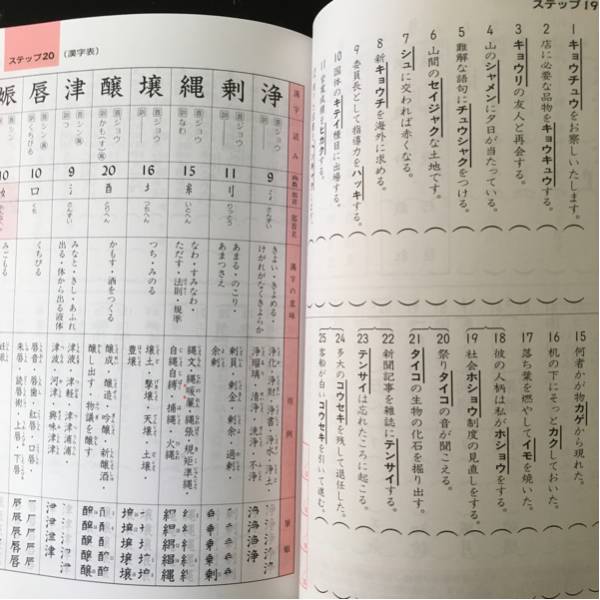 ステップ19
1 キョウチュウをお察しいたします。
2 店に必要な品物をキョウキュウする。
3 キョウリの友人と再会する。
4 山のシャメンに夕日が当たっている。
5 難解な語句にチュウシャクをつける。
6 山間のセイジャクな土地です。
7 シュに交われば赤くなる。
8 新キョウチを海外に求める。
9 委員長として指導力をハッキする。
10 国体のキテイ種目に出場する。
15 何者かが物カゲから現れた。
16 机の下にそっとカクしておいた。
17 落ち葉を燃やしてイモを焼いた。
18 彼の人柄は私がホショウする。
19 社会ホショウ制度の見直しをする。
20 祭りタイコの音が聞こえる。
21 タイコの生物の化石を掘り出す。
22 新聞記事を雑誌にテンサイする。
23 テンサイは忘れたころに起こる。
24 多大のコウセキを残して退任した。
25 客船が白いコウセキを引いて進む。
ステップ20
(漢字表)
漢字 読み 画数 部首 部首名 漢字の意味 用例 筆順
浄 音 ジョウ 訓 9 氵 さんずい きよい・きよめる・けがれがなくきよらか 浄化・浄財・浄書・浄水・浄土・浄瑠璃・清浄・洗浄・不浄
剰 音 ジョウ 訓 11 刂 りっとう あまる・のこり・あまつさえ 剰員・剰金・剰余・過剰・余剰
縄 音 ジョウ 訓 なわ 15 糸 いとへん なわ・すみなわ・ただす・法則・規準 縄文・縄暖簾・縄張・規矩準縄・自縄自縛・捕縄・火縄
壌 音 ジョウ 訓 16 土 つちへん つち・みのる 壌土・撃壌・天壌・土壌・豊壌
醸 音 ジョウ 訓 かも(す) 20 酉 とりへん かもす・酒をつくる 醸成・醸造・吟醸・新醸酒・醸し出す・物議を醸す
津 音 シン 訓 つ 9 氵 さんずい みなと・きし・あふれ出る・体から出る液体 津液・津軽・津津浦浦・津波・河津・興味津津
唇 音 シン 訓 くちびる 10 口 くち くちびる 唇音・唇歯・紅唇・口唇・朱唇・読唇術・上唇・下唇
娠 音 シン 訓 10 みごもる